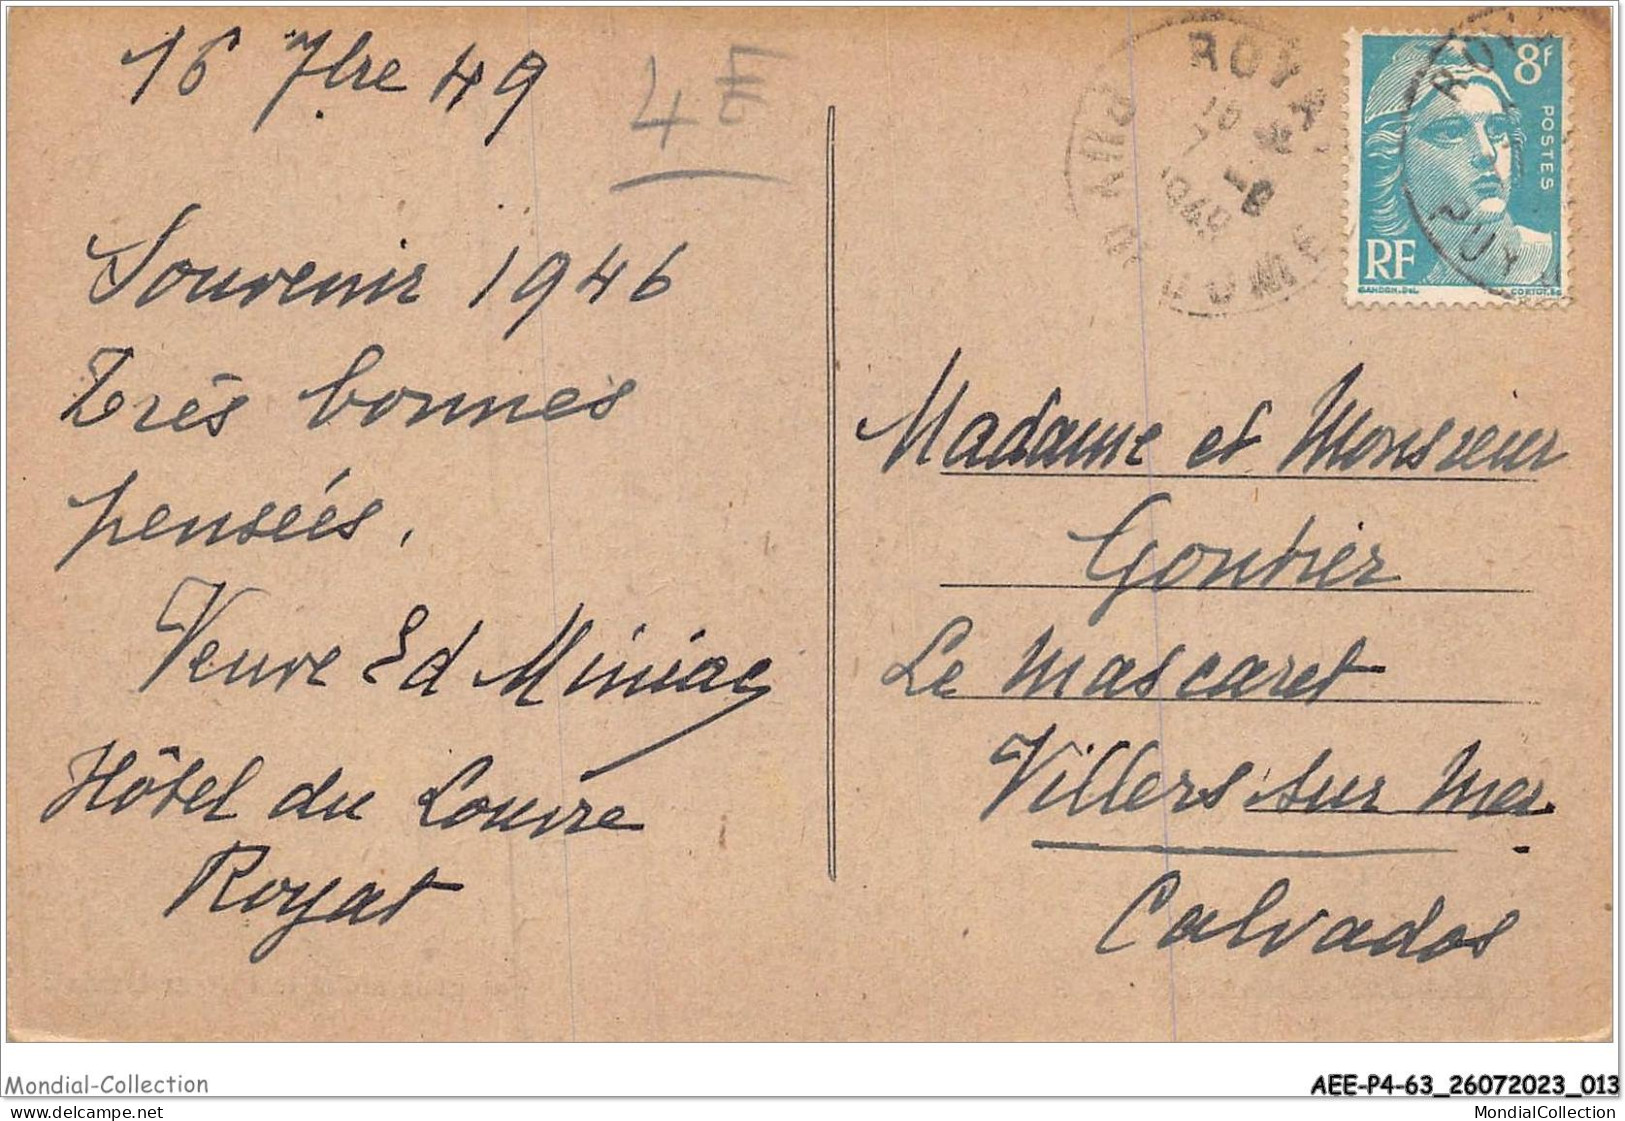 16 7bre 49
4E
Souvenir 1946
Très bonnes
pensées.
Veuve Ed Miniac
Hôtel du Louvre
Royat
ROYAT
PUY D
8F
POSTES
RF
GANDON.DEL
CORTOT.SC
Madame et Monsieur
Gontier
Le Mascaret
Villers sur Mer
Calvados
Mondial-Collection
delcampe.net
AEE-P4-63_26072023_013
MondialCollection